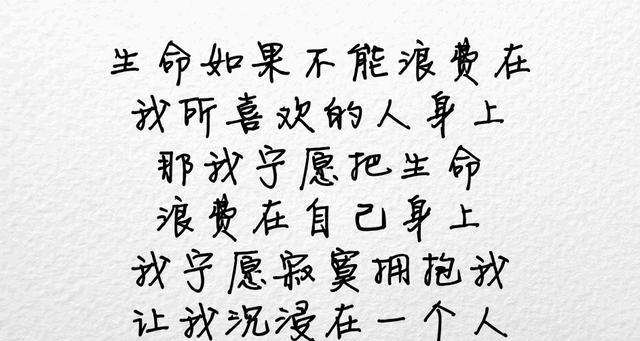 生命如果不能浪费在
我所喜欢的人身上
那我宁愿把生命
浪费在自己身上
我宁愿寂寞拥抱我
让我沉浸在一个人